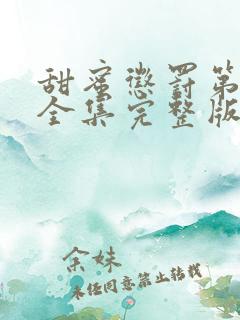 甜蜜惩罚第
全集完整版
余妹
未经同意禁止转载